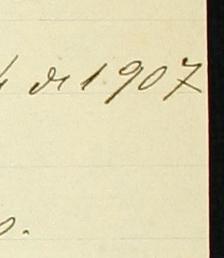 de 1907